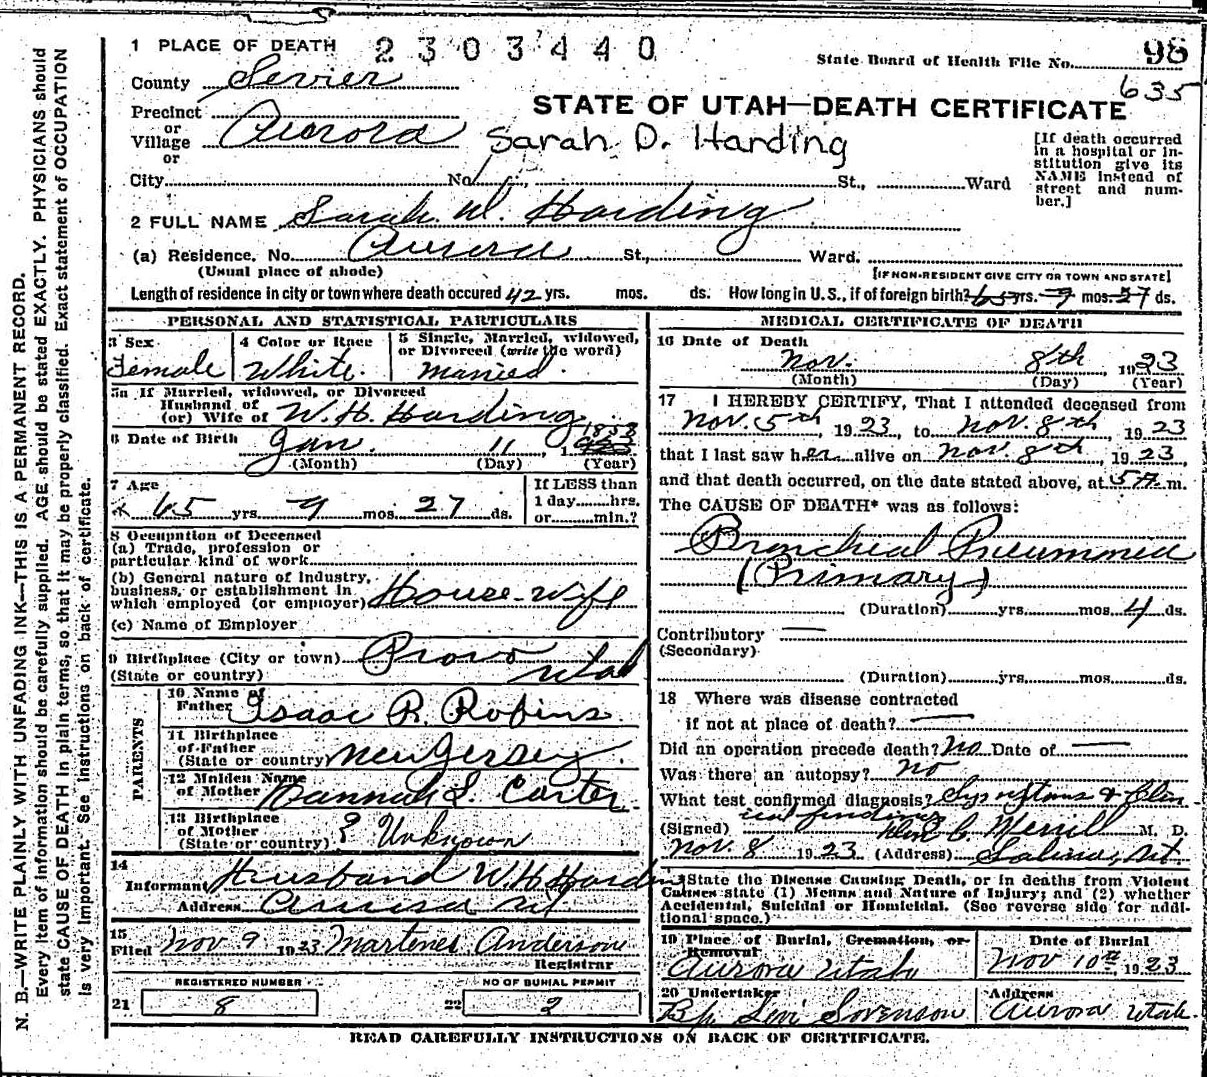 1 PLACE OF DEATH 2303440
State Board of Health File No. 98
635
County Sevier
STATE OF UTAH—DEATH CERTIFICATE
Precinct
or
Village Aurora
or
Sarah D. Harding
[If death occurred in a hospital or institution give its NAME instead of street and number.]
City No. St., Ward
2 FULL NAME Sarah D. Harding
(a) Residence. No. Aurora St., Ward.
(Usual place of abode) [IF NON-RESIDENT GIVE CITY OR TOWN AND STATE]
Length of residence in city or town where death occured 42 yrs. mos. ds. How long in U.S., if of foreign birth? 65 yrs. 9 mos. 27 ds.
PERSONAL AND STATISTICAL PARTICULARS
3 Sex Female
4 Color or Race White
5 Single, Married, widowed, or Divorced (write the word) Married.
5a If Married, widowed, or Divorced
Husband of
(or) Wife of W. H. Harding
6 Date of Birth Jan. 11 1858
(Month) (Day) (Year)
7 Age 65 yrs. 9 mos. 27 ds.
If LESS than
1 day hrs.
or min.?
8 Occupation of Deceased
(a) Trade, profession or
particular kind of work
(b) General nature of Industry,
business, or establishment in
which employed (or employer) House-wife
(c) Name of Employer
9 Birthplace (City or town) Provo
(State or country) Utah
PARENTS
10 Name of
Father Isaac R. Robins
11 Birthplace
of Father
(State or country) New Jersey.
12 Maiden Name
of Mother Hannah S. Carter
13 Birthplace
of Mother
(State or country) ? Unknown
14
Informant Husband W H Harding
Address Aurora Ut
15
Filed Nov 9 1923 Martenes Anderson
Registrar
REGISTERED NUMBER
21 8
NO OF BURIAL PERMIT
22 2
MEDICAL CERTIFICATE OF DEATH
16 Date of Death
Nov. 8th 1923
(Month) (Day) (Year)
17 I HEREBY CERTIFY, That I attended deceased from
Nov. 5th, 1923, to Nov. 8th, 1923
that I last saw her alive on Nov. 8th, 1923,
and that death occurred, on the date stated above, at 5 A. m.
The CAUSE OF DEATH* was as follows:
Broncheal Pneumonia
(Primary)
(Duration) yrs. mos. 4 ds.
Contributory —
(Secondary)
(Duration) yrs. mos. ds.
18 Where was disease contracted
if not at place of death? —
Did an operation precede death? No Date of —
Was there an autopsy? No
What test confirmed diagnosis? Symptoms & Clin
ical findings
(Signed) C. Merrill M. D.
Nov. 8 1923 (Address) Salina, Ut.
*State the Disease Causing Death, or in deaths from Violent
Causes state (1) Means and Nature of Injury; and (2) whether
Accidental, Suicidal or Homicidal. (See reverse side for addi-
tional space.)
19 Place of Burial, Cremation, or
Removal
Aurora Utah
Date of Burial
Nov 10th, 1923
20 Undertaker
Bp. Levi Sorenson
Address
Aurora Utah.
READ CAREFULLY INSTRUCTIONS ON BACK OF CERTIFICATE.
N. B.—WRITE PLAINLY WITH UNFADING INK—THIS IS A PERMANENT RECORD.
Every item of information should be carefully supplied. AGE should be stated EXACTLY. PHYSICIANS should
state CAUSE OF DEATH in plain terms, so that it may be properly classified. Exact statement of OCCUPATION
is very important. See instructions on back of certificate.